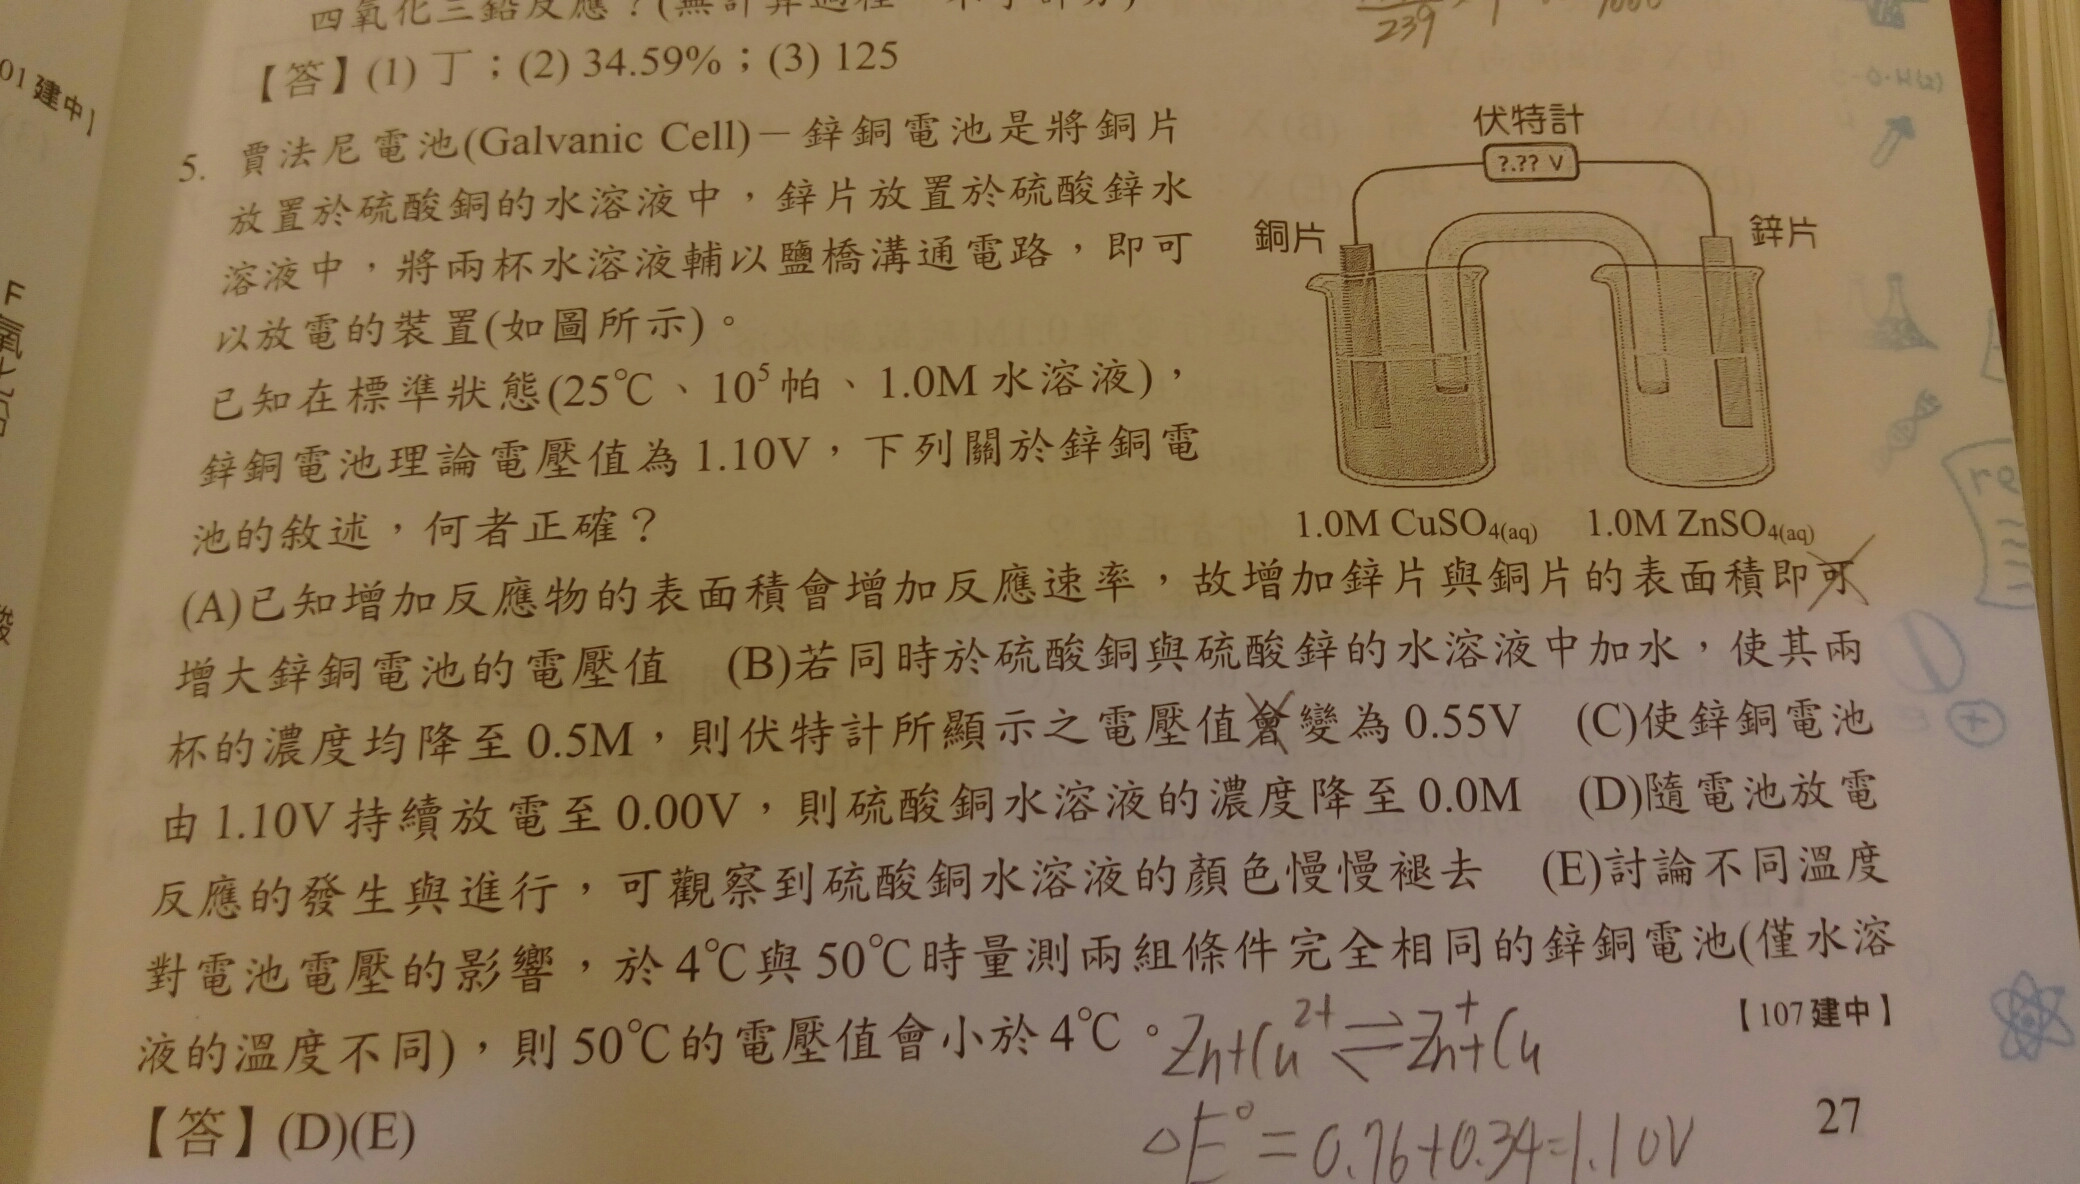 四氧化三鉛反應？(無計算過程
239
01建中】
【答】(1) 丁；(2) 34.59%；(3) 125
5. 賈法尼電池(Galvanic Cell)－鋅銅電池是將銅片
放置於硫酸銅的水溶液中，鋅片放置於硫酸鋅水
溶液中，將兩杯水溶液輔以鹽橋溝通電路，即可
以放電的裝置(如圖所示)。
已知在標準狀態(25℃、10⁵帕、1.0M 水溶液)，
鋅銅電池理論電壓值為 1.10V，下列關於鋅銅電
池的敘述，何者正確？
伏特計
?.?? V
銅片
鋅片
1.0M CuSO₄(aq)
1.0M ZnSO₄(aq)
(A)已知增加反應物的表面積會增加反應速率，故增加鋅片與銅片的表面積即可
增大鋅銅電池的電壓值 (B)若同時於硫酸銅與硫酸鋅的水溶液中加水，使其兩
杯的濃度均降至 0.5M，則伏特計所顯示之電壓值會變為 0.55V (C)使鋅銅電池
由 1.10V 持續放電至 0.00V，則硫酸銅水溶液的濃度降至 0.0M (D)隨電池放電
反應的發生與進行，可觀察到硫酸銅水溶液的顏色慢慢褪去 (E)討論不同溫度
對電池電壓的影響，於 4℃與 50℃時量測兩組條件完全相同的鋅銅電池(僅水溶
液的溫度不同)，則 50℃的電壓值會小於 4℃。
【107建中】
Zn+Cu²⁺⇌Zn⁺+Cu
【答】(D)(E)
△E°=0.76+0.34=1.10V
27